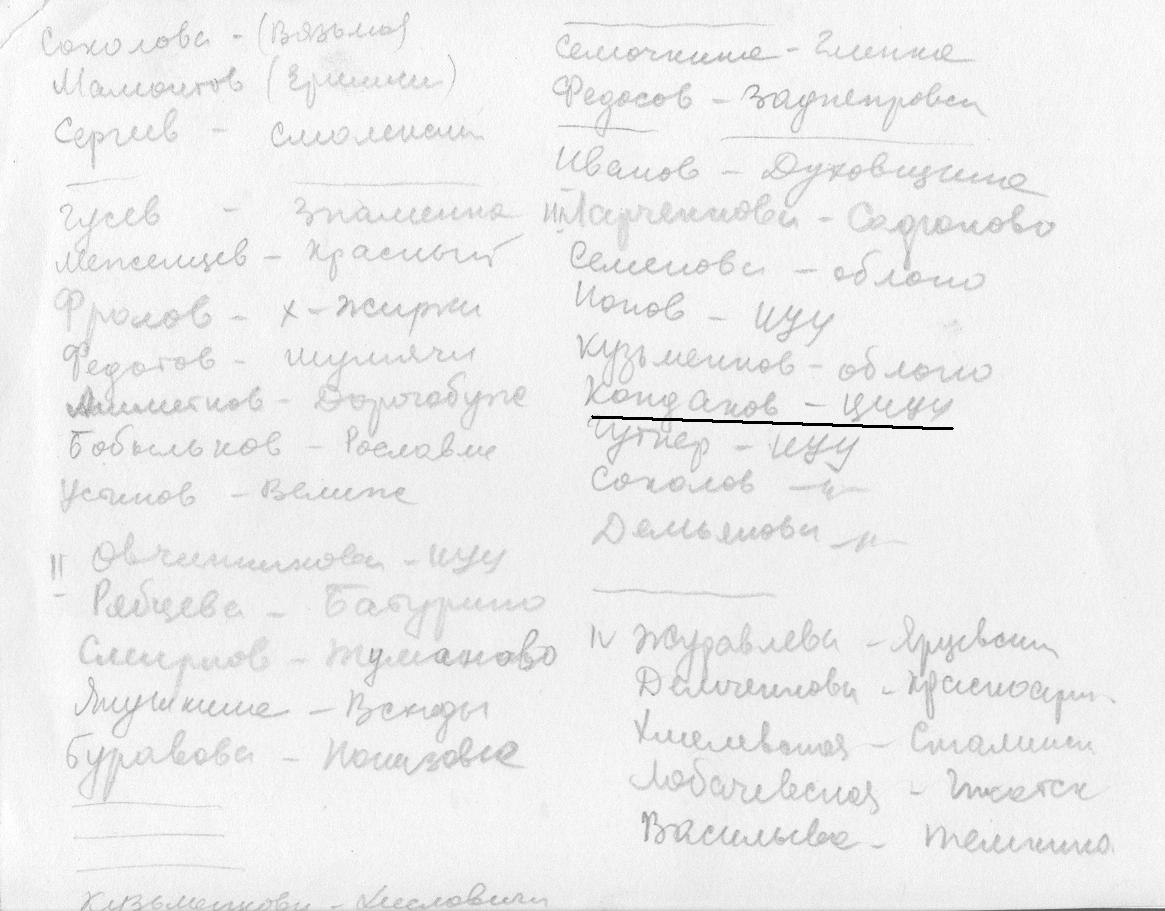 Соколова - (Вязьма)
Мамонтов (Ершичи)
Сергеев - Смоленский
Гусев - Знаменка
Меженцев - Красный
Фролов - х-Жирки
Федотов - Шумячи
- Дорогобуж
Бобыльков - Рославль
Устинов - Велиж
II Овчинникова - ИУУ
Рябцева - Батурино
Смирнов - Тумановo
Якушкина - Всходы
Буравова - Понизовье
Кузьменкова - Хиславичи
Семочкина - Глинка
Федосов - Заднепровск
Иванов - Духовщина
III Ларченкова - Сафоново
Семенова - облоно
Попов - ИУУ
Кузьменков - облоно
Кондаков - ЦИУУ
Гутнер - ИУУ
Соколов -"-
Демьянова -"-
IV Журавлева - Ярцевский
Демченкова - Красноарм.
Хмелевская - Сталинск
Лобачевская - Гжатск
Васильева - Темкино